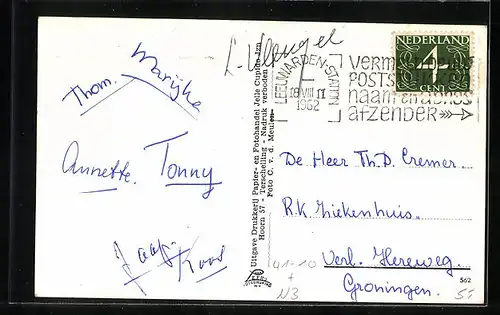 Thom.
Marijke
Annette.
Tonny
Jaap.
Koos
Uitgave Drukkerij Papier- en Fotohandel Jelle Cupido Jzn
Hoorn 57 - Terschelling - Nadruk verboden
Foto C. v. d. Meulen
LEEUWARDEN-STATION
18 VIII 11
1962
NEDERLAND
4
CENT
POSTS
naam en adres
afzender
De Heer Th. D. Cremer.
R.K. Ziekenhuis.
Verl. Hereweg.
Groningen.
562
41-10
+
N3